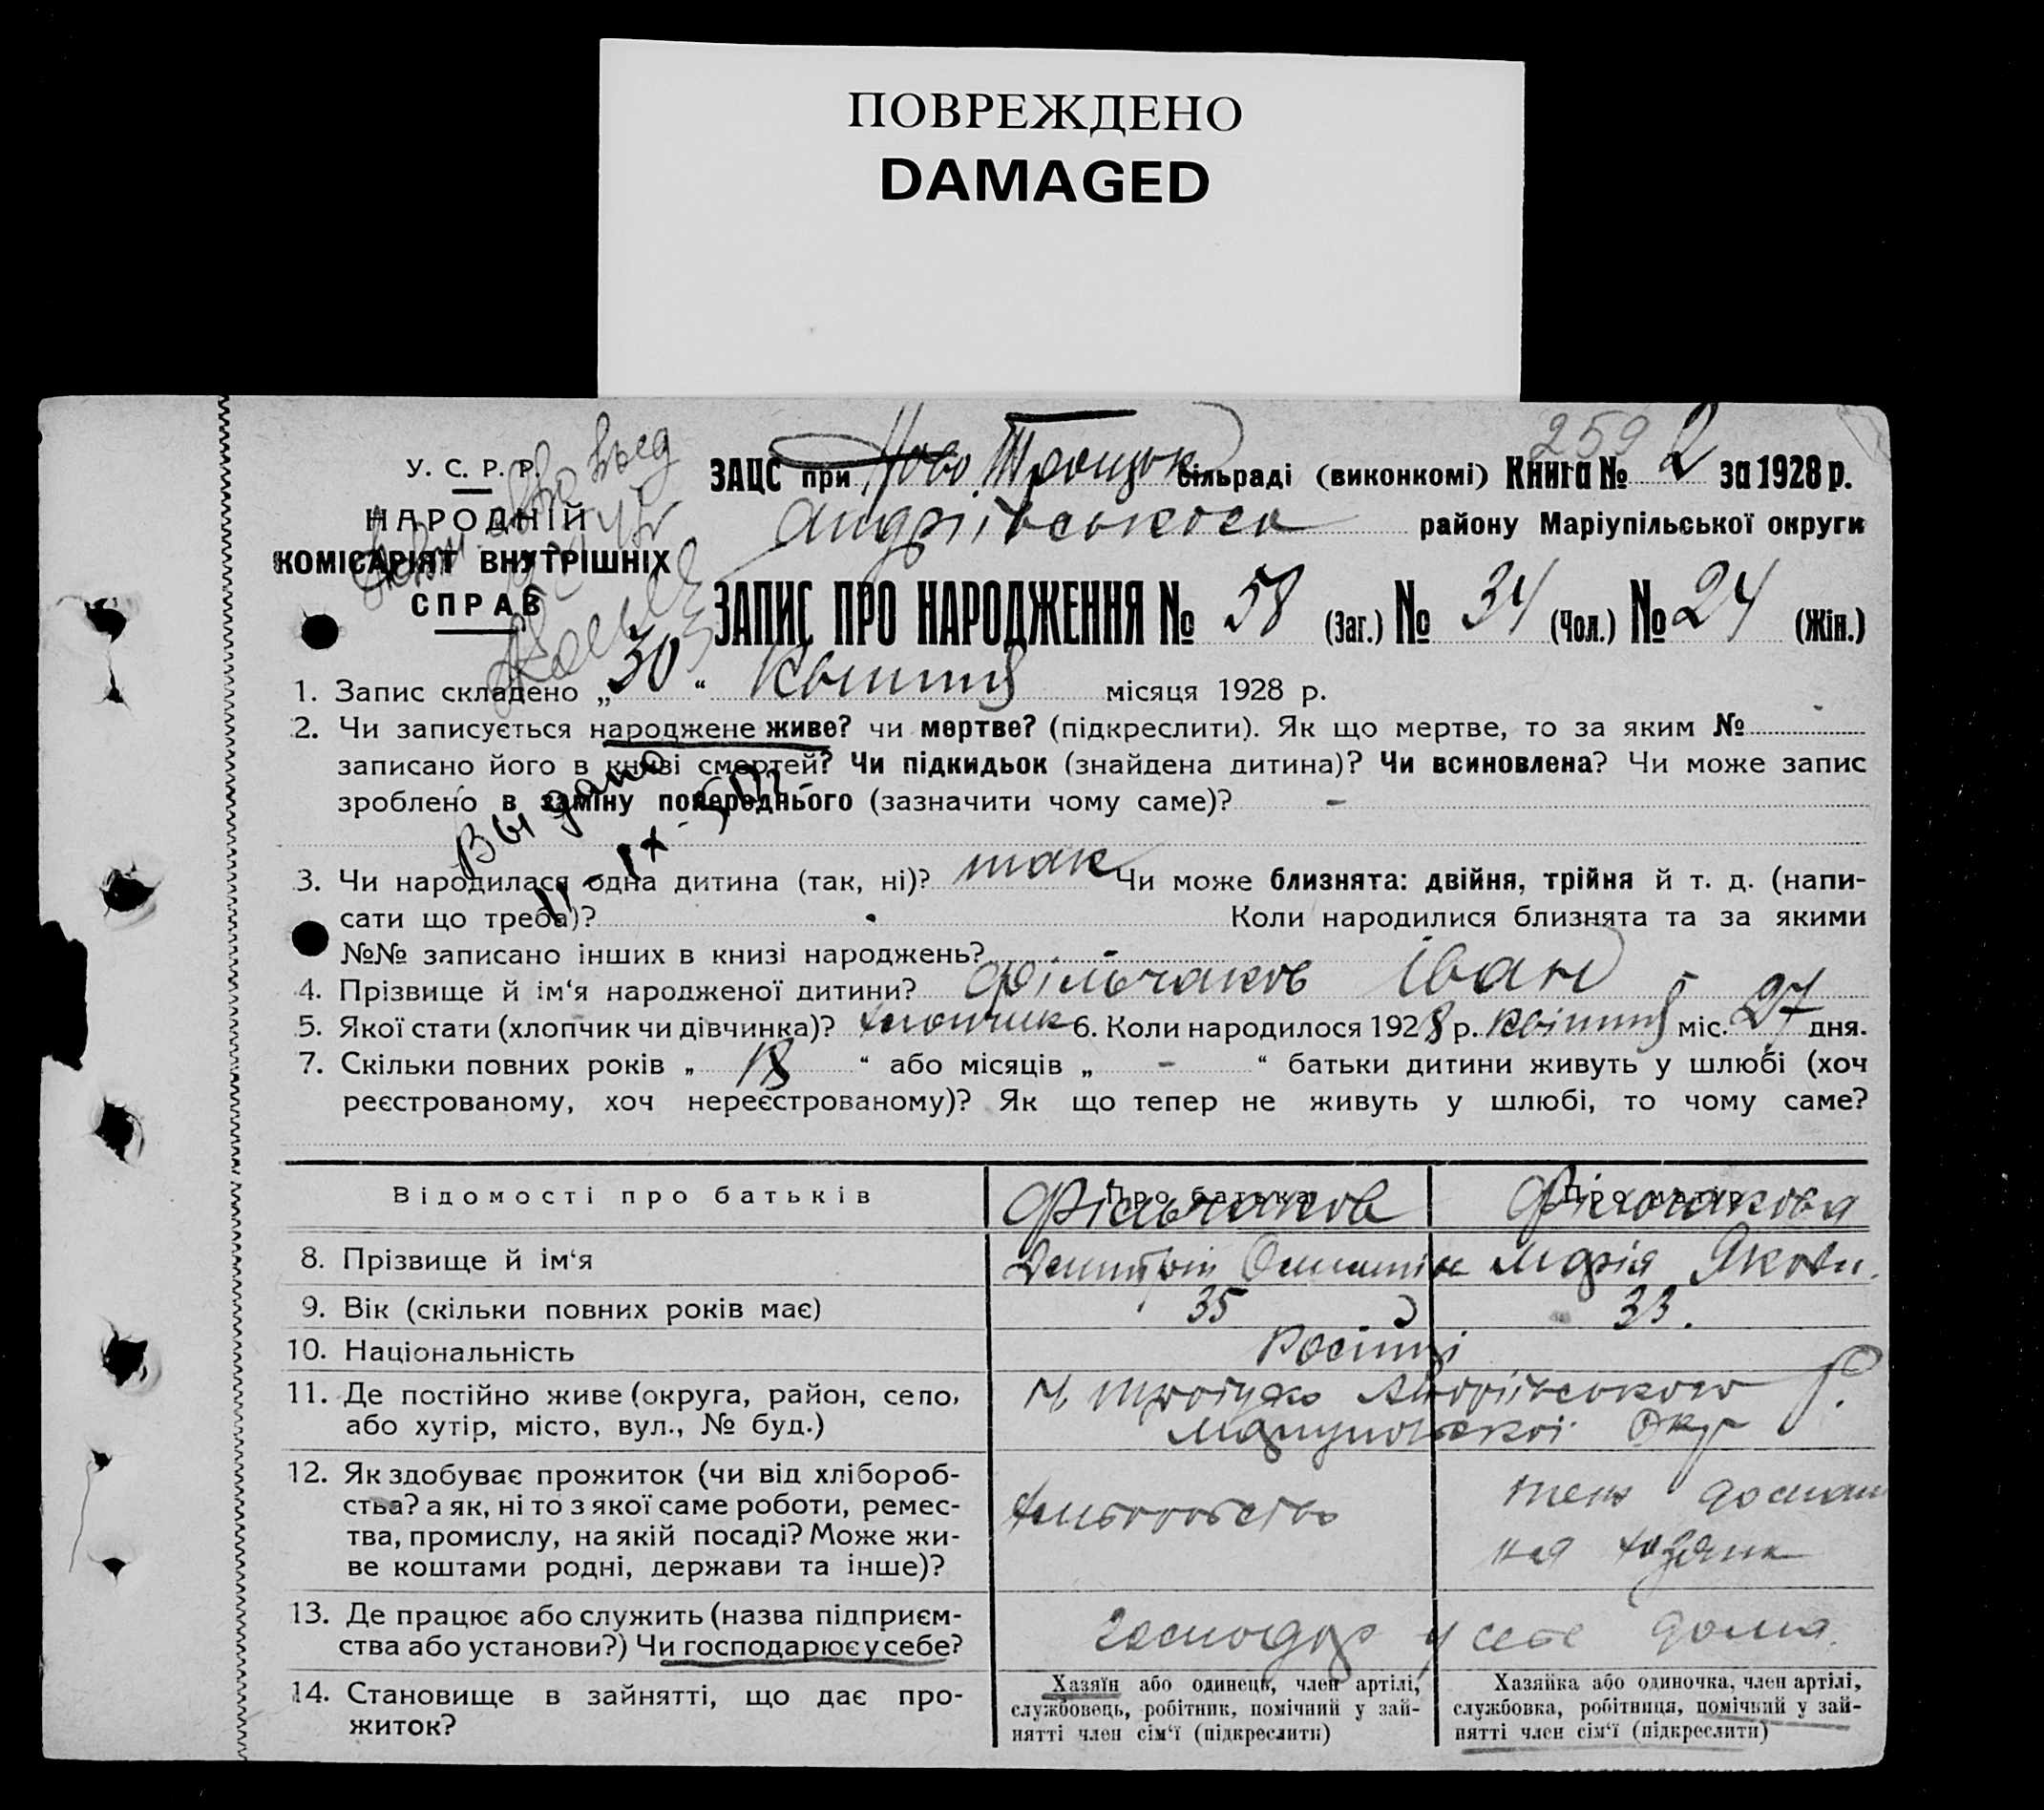 ПОВРЕЖДЕНО
DAMAGED
259
У. С. Р. Р.
НАРОДНІЙ
КОМІСАРІЯТ ВНУТРІШНІХ
СПРАВ
ЗАЦС при Ново Троицьк сільраді (виконкомі) Книга № 2 за 1928 р.
Андріївського району Маріупільської округи
ЗАПИС ПРО НАРОДЖЕННЯ № 58 (Заг.) № 34 (Чол.) № 24 (Жін.)
1. Запис складено „ 30 “ Квітня місяця 1928 р.
2. Чи записується народжене живе? чи мертве? (підкреслити). Як що мертве, то за яким №
записано його в книзі смертей? Чи підкидьок (знайдена дитина)? Чи всиновлена? Чи може запис
зроблено в заміну попереднього (зазначити чому саме)? -
Выдано
11 - IX -
3. Чи народилася одна дитина (так, ні)? так Чи може близнята: двійня, трійня й т. д. (напи-
сати що треба)? Коли народилися близнята та за якими
№№ записано інших в книзі народжень?
4. Прізвище й ім‘я народженої дитини? Фільчаков Іван
5. Якої стати (хлопчик чи дівчинка)? хлопчик 6. Коли народилося 1928 р. квітня міс. 27 дня.
7. Скільки повних років „ 18 “ або місяців „ - “ батьки дитини живуть у шлюбі (хоч
реєстрованому, хоч нереєстрованому)? Як що тепер не живуть у шлюбі, то чому саме?
Відомості про батьків Про батька Фільчаков Про матір Фільчакова
8. Прізвище й ім‘я Дмитрій Марія Якові.
9. Вік (скільки повних років має) 35 33.
10. Національність Росіяні
11. Де постійно живе (округа, район, село, Н Троіцко Андріївського Р.
або хутір, місто, вул., № буд.) Маріупольскоі Окр
12. Як здобуває прожиток (чи від хлібороб-
ства? а як, ні то з якої саме роботи, ремес-
тва, промислу, на якій посаді? Може жи-
ве коштами родні, держави та інше)?
хліборобство
13. Де працює або служить (назва підприєм-
ства або установи?) Чи господарює у себе?
господар у себе дома.
14. Становище в зайнятті, що дає про-
житок?
Хазяїн або одинець, член артілі,
службовець, робітник, помічний у зай-
нятті член сім‘ї (підкреслити)
Хазяйка або одиночка, член артілі,
службовка, робітниця, помічний у зай-
нятті член сім‘ї (підкреслити)